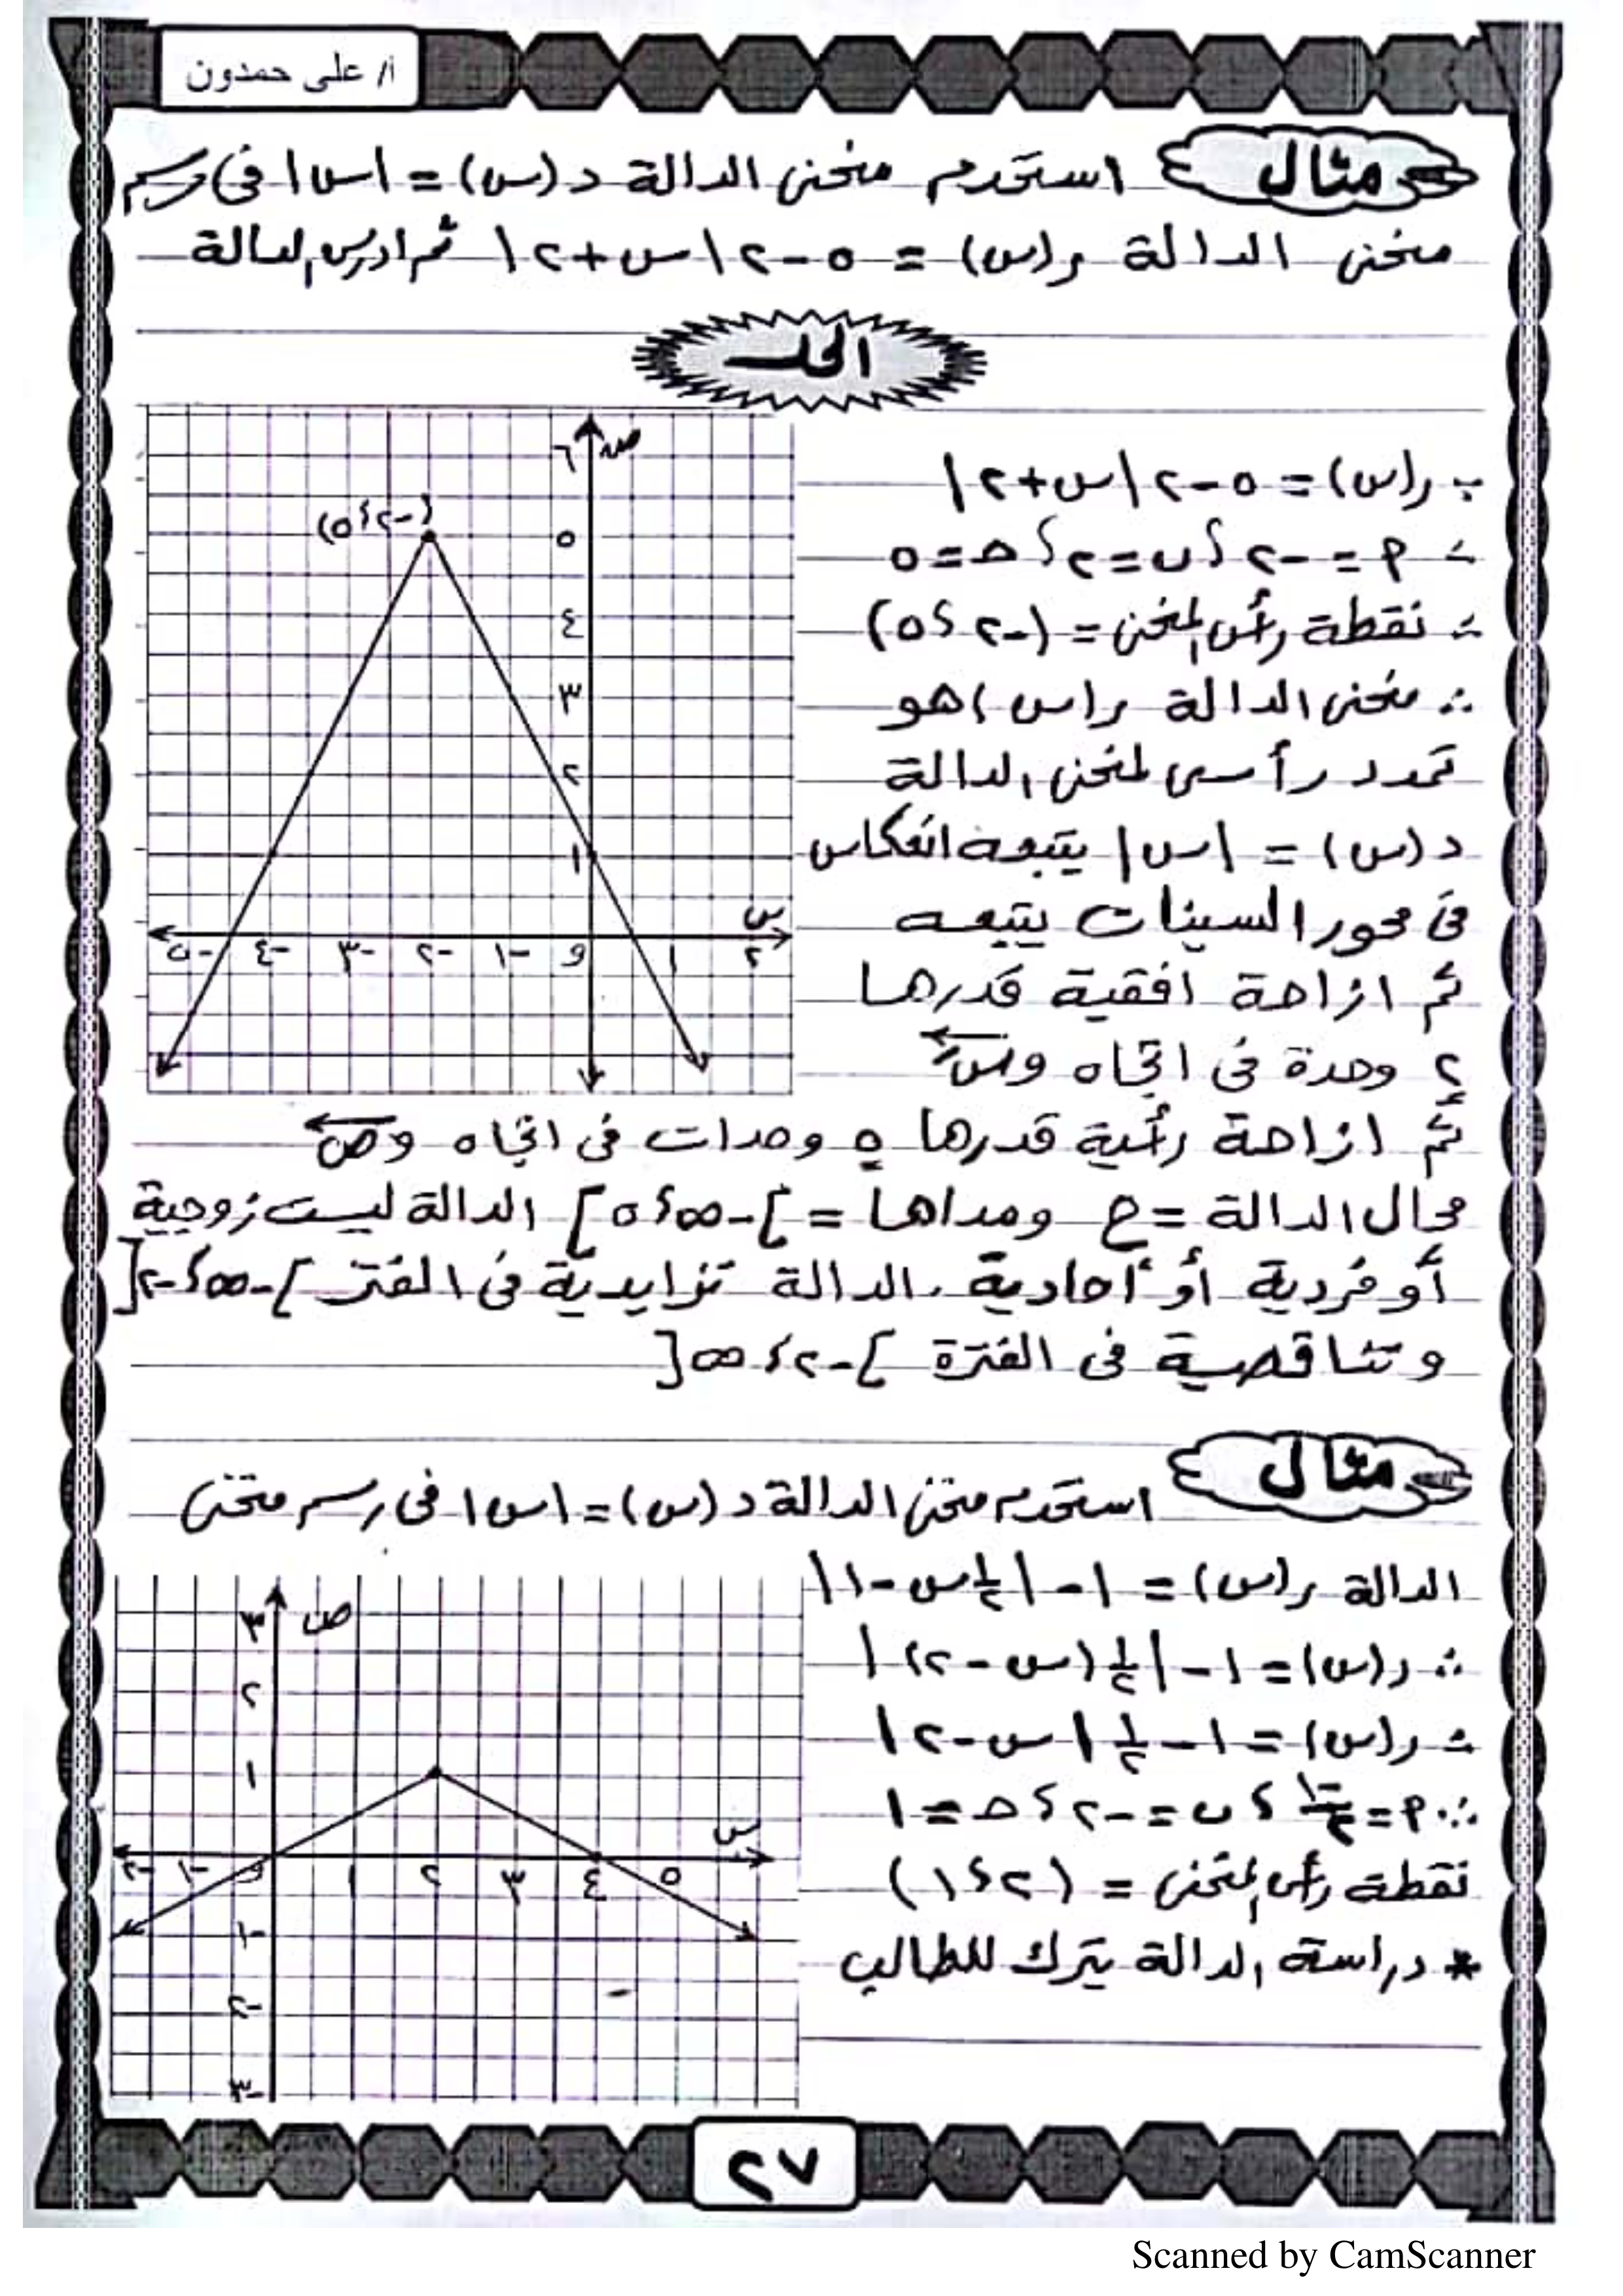 أ/ على حمدون
مثال استخدم منحنى الدالة د (س) = |س| فى رسم
منحنى الدالة ر(س) = ٥ - ٢|س + ٢| ثم ادرس الدالة
الحل
∵ ر(س) = ٥ - ٢|س + ٢|
∴ P = -٢ ، ب = ٢ ، حـ = ٥
∴ نقطة رأس المنحنى = (-٢ ، ٥)
∴ منحنى الدالة ر(س) هو
تمدد رأسى لمنحنى الدالة
د (س) = |س| يتبعه انعكاس
فى محور السينات يتبعه
ثم ازاحة افقية قدرها
٢ وحدة فى اتجاه وسَ
ثم ازاحة رأسية قدرها ٥ وحدات فى اتجاه وص
مجال الدالة = ح ومداها = ]-∞ ، ٥] الدالة ليست زوجية
أو فردية أو أحادية ، الدالة تزايدية فى الفتر ]-∞ ، -٢[
وتناقصية فى الفترة ]-٢ ، ∞[
ص
٦
(-٢ ، ٥)
٥
٤
٣
٢
١
س
-٥ -٤ -٣ -٢ -١ و ١ ٢
مثال استخدم منحنى الدالة د (س) = |س| فى رسم منحنى
الدالة ر(س) = ١ - |١/٢ س - ١|
∴ ر(س) = ١ - |١/٢ (س - ٢)|
∴ ر(س) = ١ - ١/٢ |س - ٢|
∴ P = -١/٢ ، ب = -٢ ، حـ = ١
نقطة رأس المنحنى = (٢ ، ١)
* دراسة الدالة يترك للطالب
ص
٣
٢
١
س
-٢ -١ و ١ ٢ ٣ ٤ ٥
-١
-٢
-٣
٢٧
Scanned by CamScanner